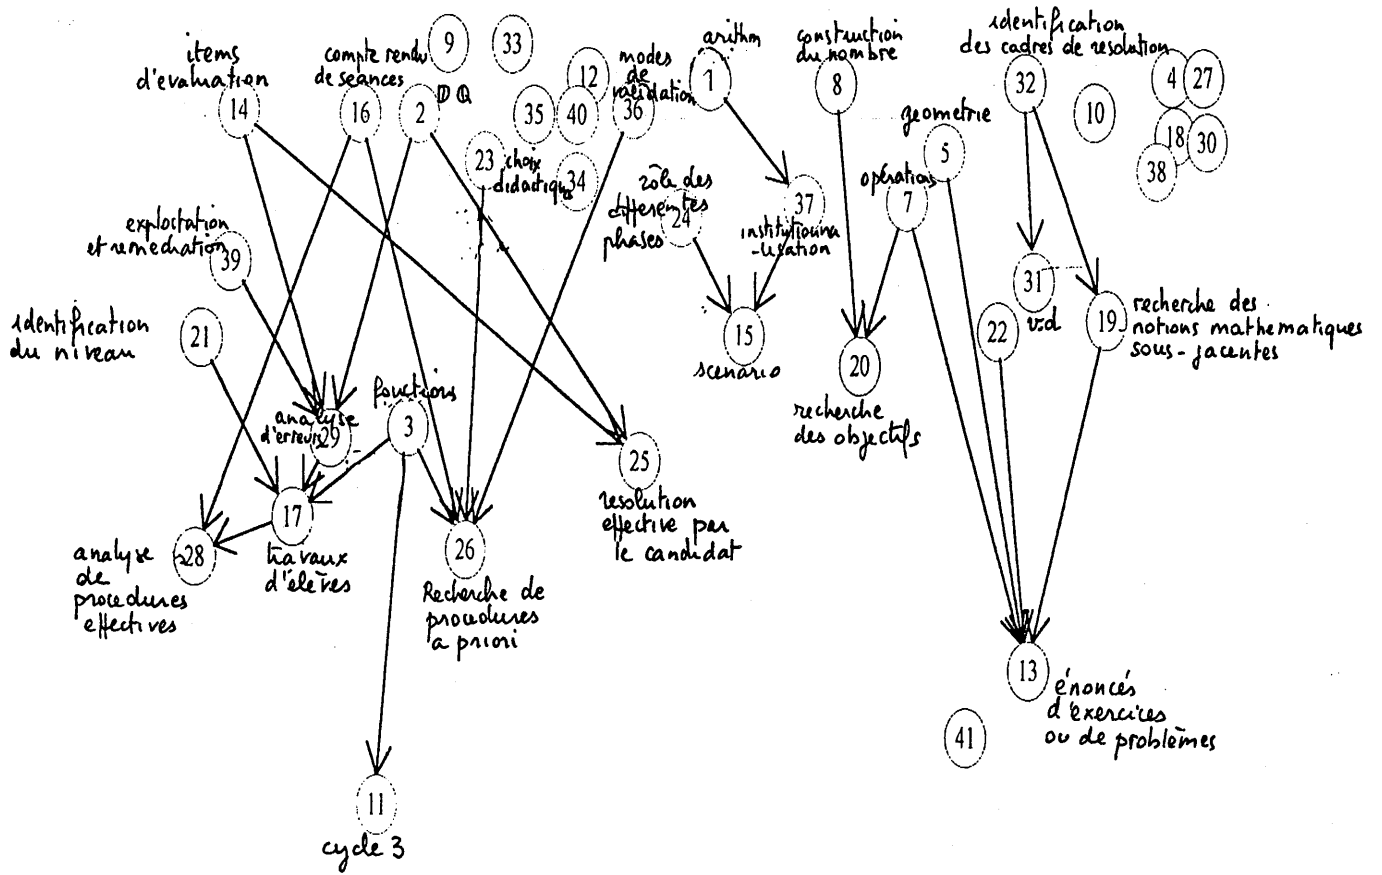 items
d'evaluation
14
compte rendu
de seances
16
9
D Q
2
33
12
35
40
modes
de
validation
36
23
choix
didactique
34
arithm
1
construction
du nombre
8
identification
des cadres de resolution
32
4
27
10
18
30
38
geometrie
5
opérations
7
rôle des
differentes
phases
24
37
institutionna
-lisation
exploitation
et remediation
39
identification
du niveau
21
31
vd
22
19
recherche des
notions mathematiques
sous-jacentes
15
scenario
20
recherche
des objectifs
fonctions
3
analyse
d'erreurs
29
25
resolution
effective par
le candidat
17
travaux
d'élèves
28
analyse
de
procedures
effectives
26
Recherche de
procedures
a priori
13
énoncés
d'exercices
ou de problèmes
41
11
cycle 3